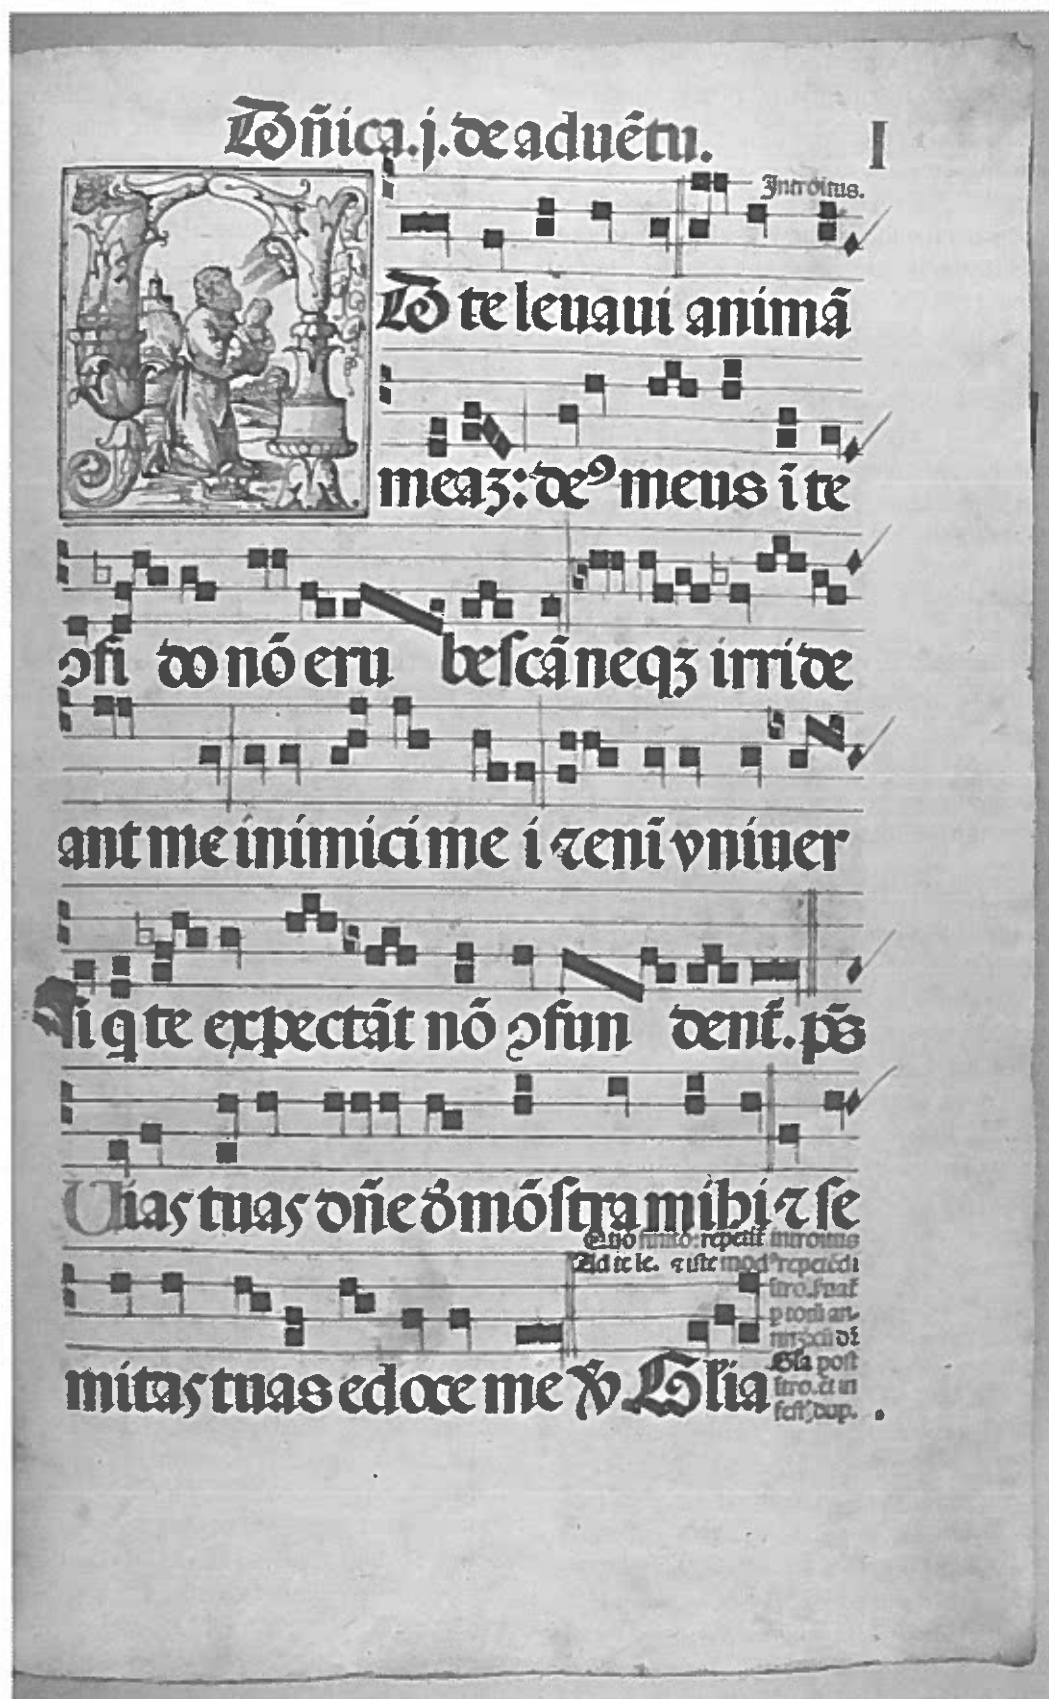 Dñica.j.de aduẽtu.
I
Introitus.
AD te leuaui animã
meaʒ: deꝰ meus ĩ te
ꝯfi do nõ eru bescã neqʒ irride
ant me inimici me i ⁊ enĩ vniuer
si q te expectãt nõ ꝯfun dent̃. p̃s
Uias tuas dñe d̃mõstra mihi ⁊ se
mitas tuas edoce me ℣ Gl̃ia
Quo finito: repetit̃ introitus
Ad te le. ⁊ iste modꝰ repetẽdi
Gl̃a post
itro. et in
fest̃ dup.